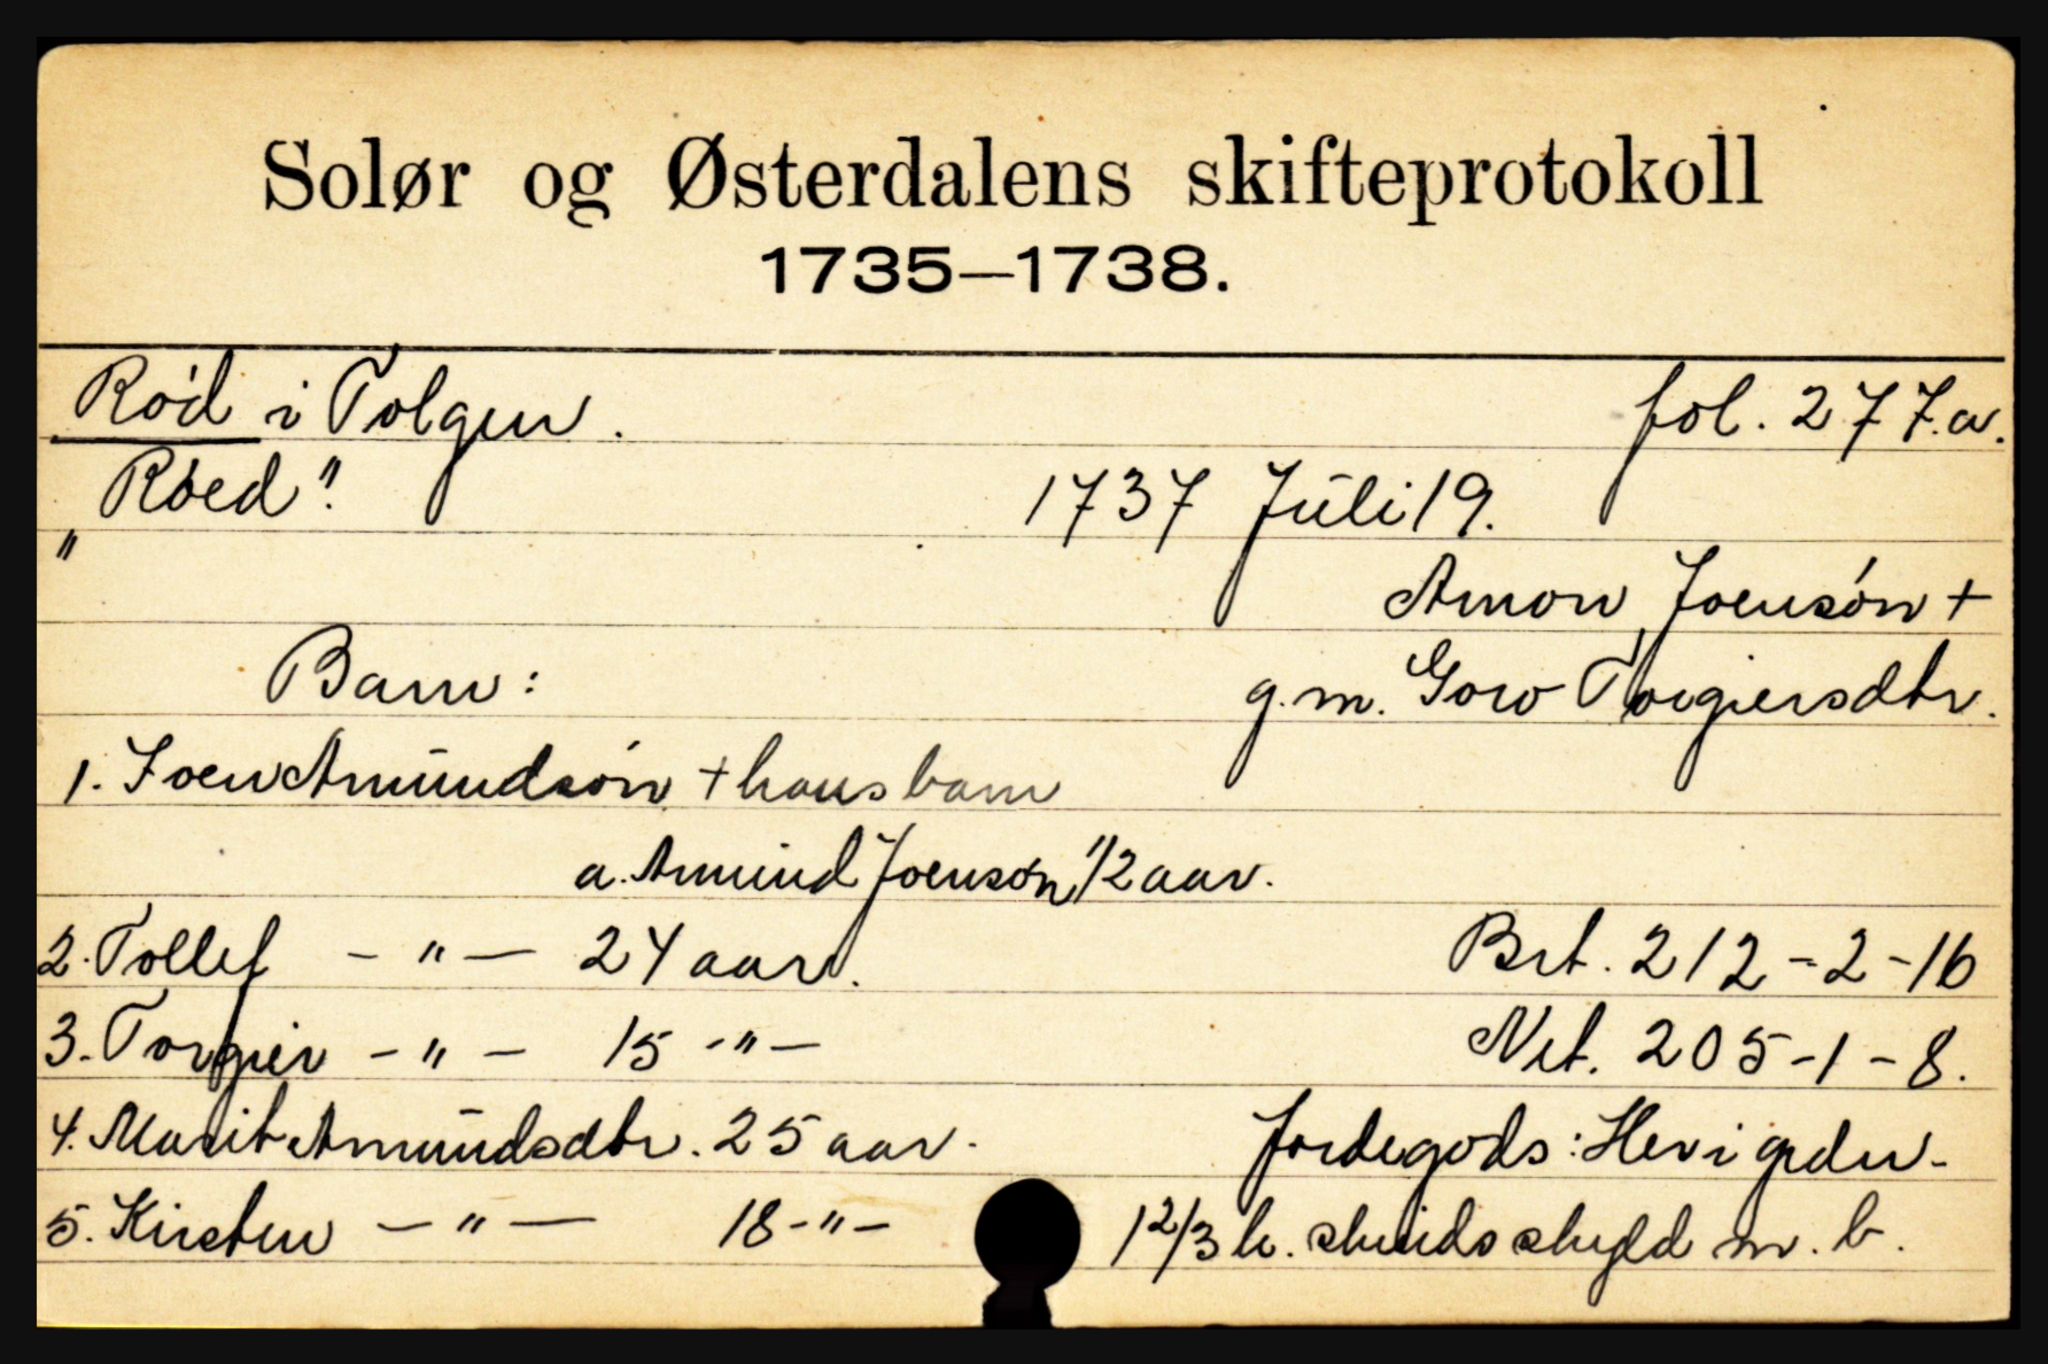 Solør og Østerdalens skifteprotokoll
1735—1738.
Ród i Tolgen. fol. 277.a.
"Róed". 1737 Jŭli 19.
Amon Joensón +
Barn: g.m. Goro Torgiersdtr.
1. Joen Amŭndsón + hans barn
a. Amŭnd Joensón 1/2 aar.
2. Tollef - " - 24 aar. Brt. 212-2-16
3. Torgier - " - 15 -"- Net. 205-1-8.
4. Marit Amŭndsdtr. 25 aar. Jordegods: Her i grden.
5. Kirsten - " - 18 -"- 1 2/3 h. skinds skyld m. b.